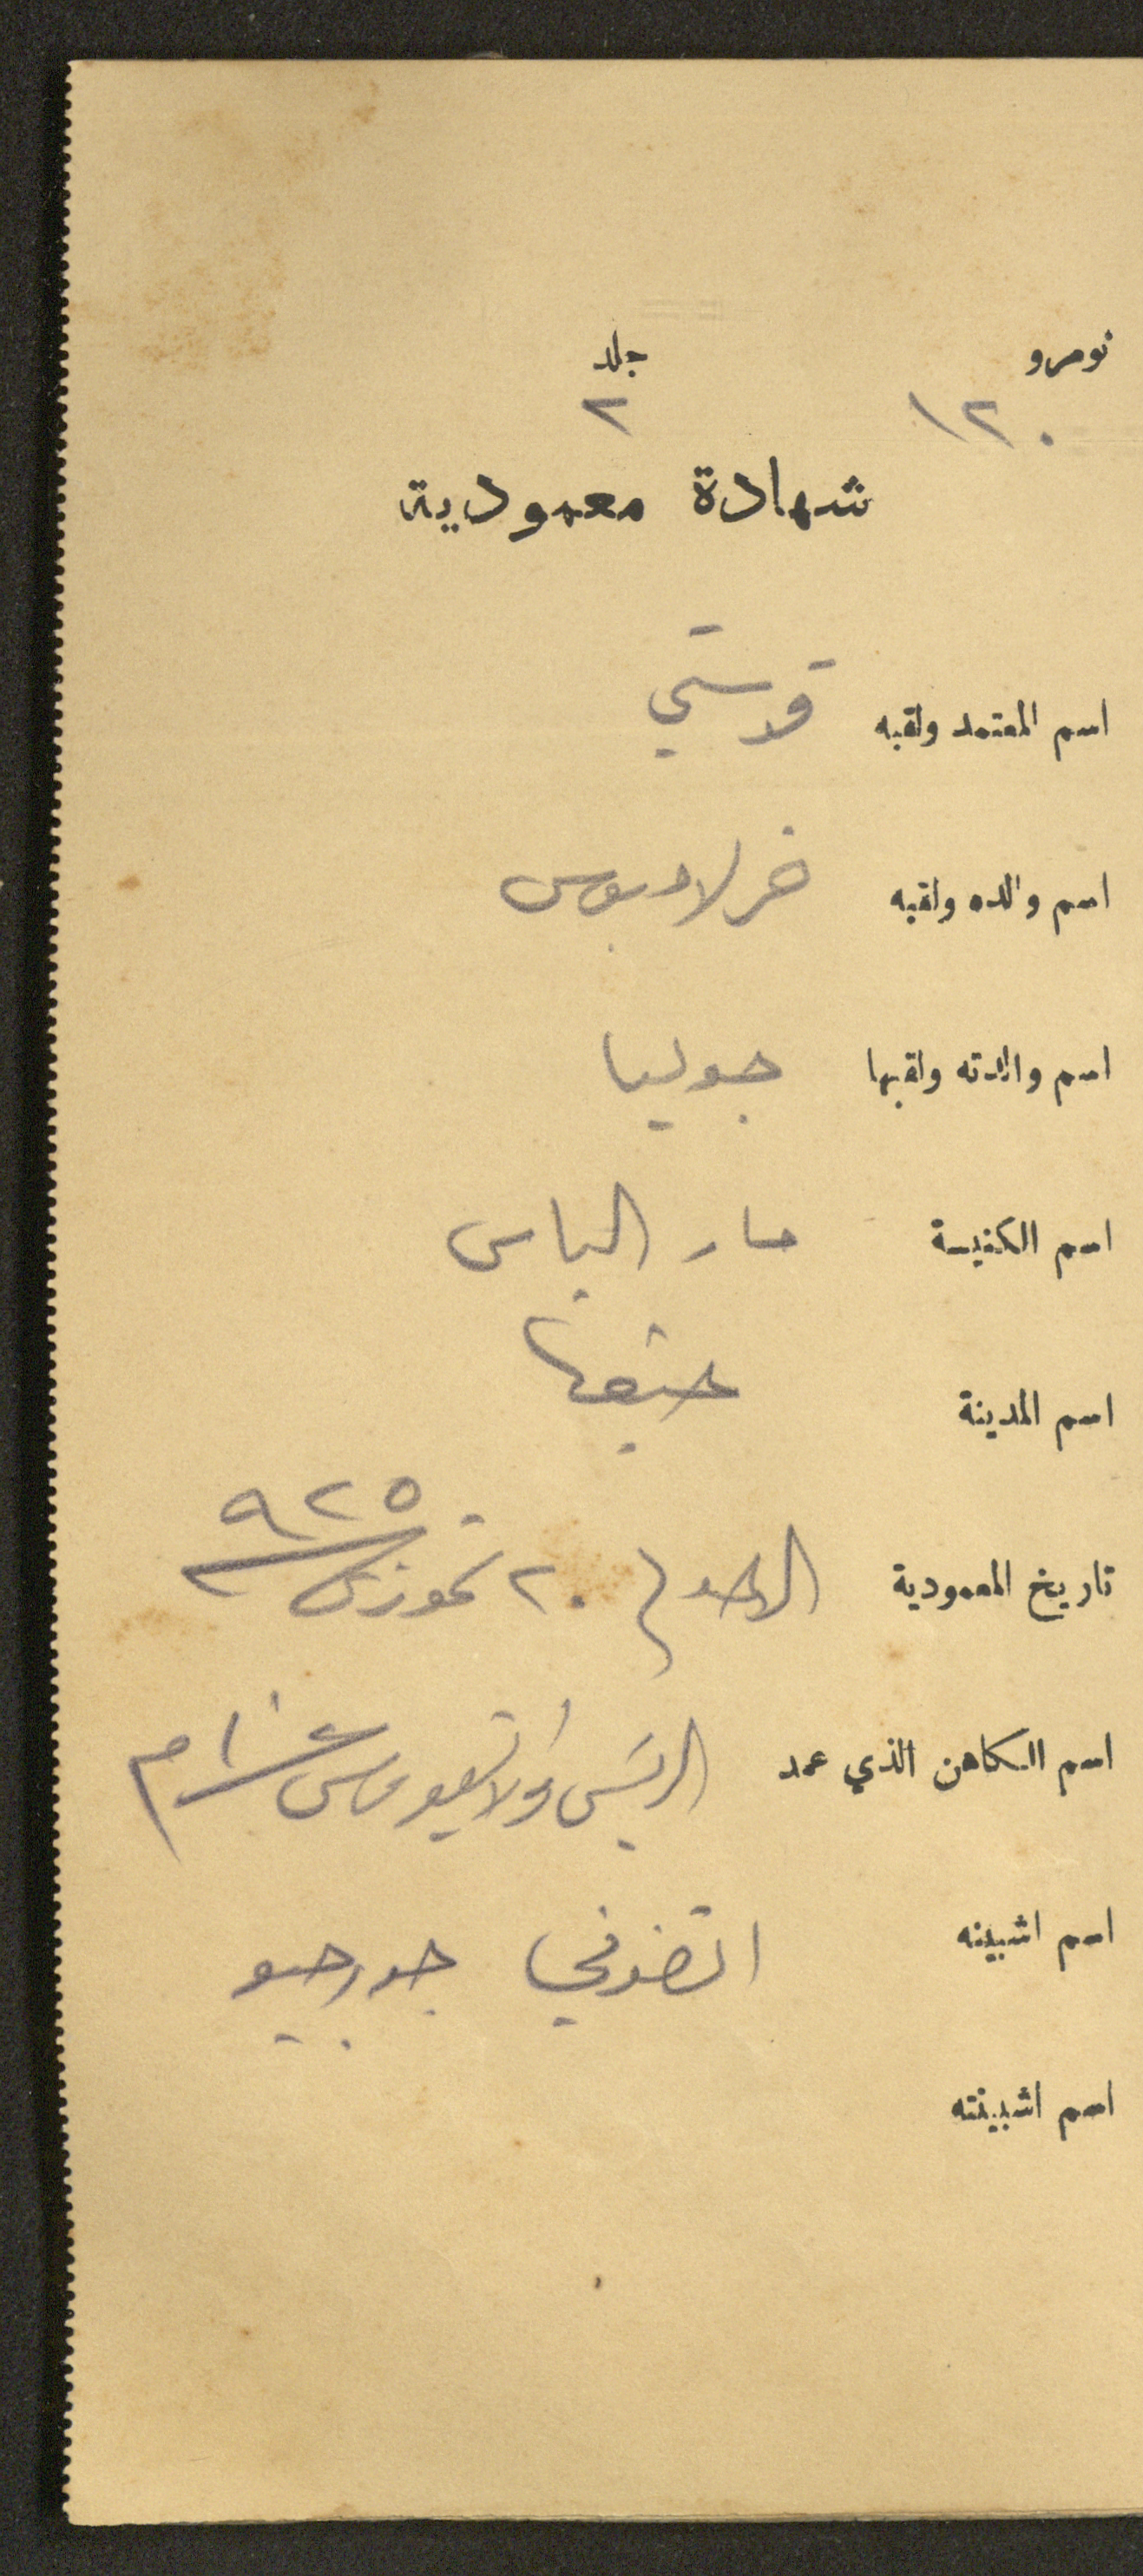 نومرو جلد
١٢٠ ٢
شهادة معمودية
اسم المعتمد ولقبه قوستي
اسم والده ولقبه خرلامبوس
اسم والدته ولقبها جوليا
اسم الكنيسة مار الياس
اسم المدينة حيفا
تاريخ المعمودية الاحد ٢٠ تموز ٩٢٥
اسم الكاهن الذي عمد
اسم اشبينه جورجيو
اسم اشبينته